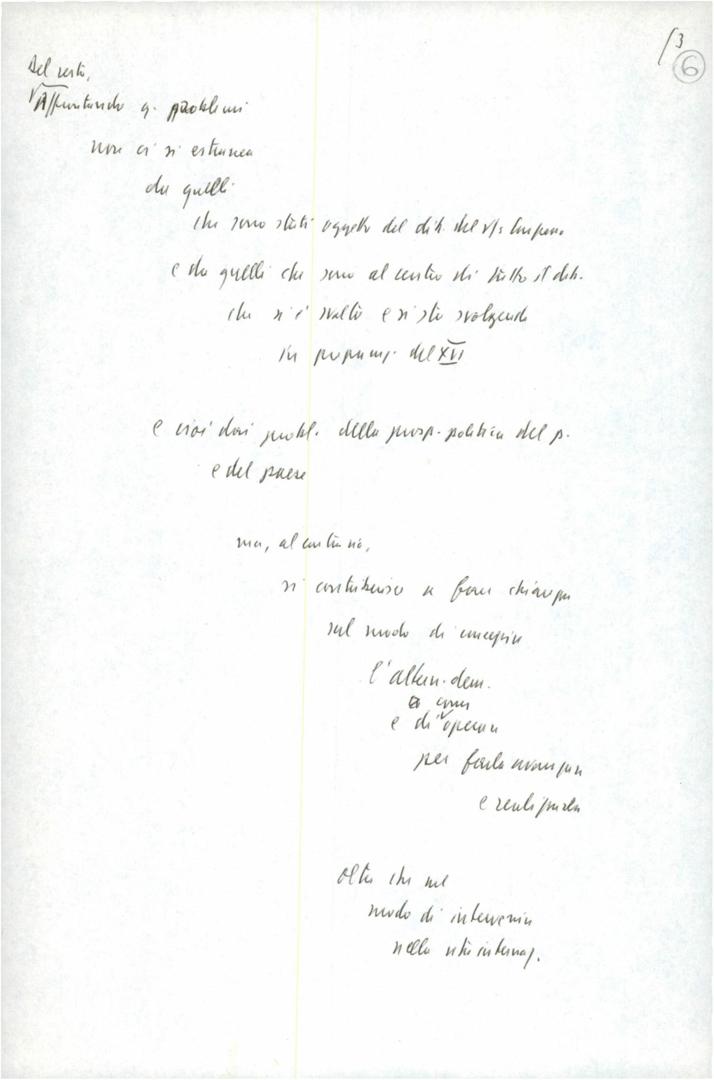 /3
6
Del resto,
Affrontando q. problemi
non ci si estranea
da quelli
che sono stati oggetto del dib. del
e da quelli che sono al centro di tutto il dib.
che si è svolto e si sta svolgendo
in del XVI
e cioè dai probl. della prosp. politica del p.
e del paese
ma, al contrario,
si contribuisce a fare
sul modo di concepire
l'altern. dem.
come
e di operare
per farla avanzare
e realizzarla
oltre che nel
modo di intervenire
nella vita internaz.